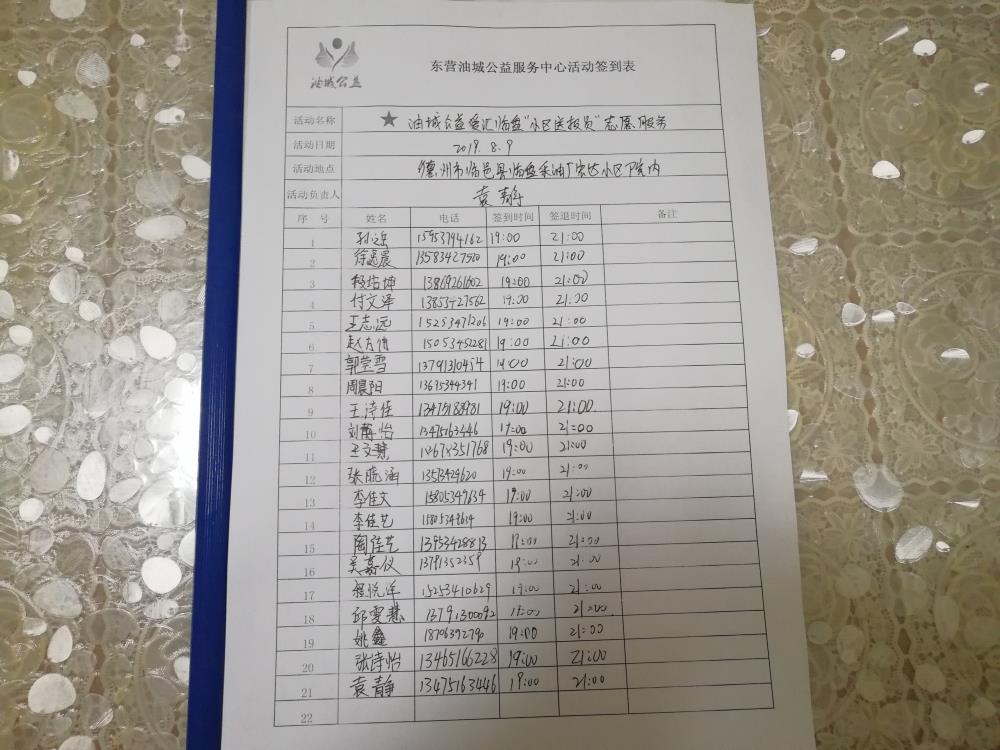 油城公益
东营油城公益服务中心活动签到表
活动名称 ★ 油城公益爱汇临盘"小区送报员"志愿服务
活动日期 2019.8.9
活动地点 德州市临邑县临盘采油厂宏达小区下院内
活动负责人 袁静
序号 姓名 电话 签到时间 签退时间 备注
1 15953794162 19:00 21:00
2 徐晨 13583427520 19:00 21:00
3 程培坤 13869261602 19:00 21:00
4 付文泽 13853427562 19:00 21:00
5 王志远 15253471206 19:00 21:00
6 赵方伟 15053451281 19:00 21:00
7 郭莹雪 13791310454 19:00 21:00
8 周晨阳 13695344341 19:00 21:00
9 王诗佳 13475188981 19:00 21:00
10 刘蒋怡 13475163446 19:00 21:00
11 王文慧 19:00 21:00
12 张晓涵 13573429620 19:00 21:00
13 李佳文 15805349634 19:00 21:00
14 李佳艺 19:00 21:00
15 陶佳艺 13953428813 19:00 21:00
16 吴嘉仪 13791352359 19:00 21:00
17 程悦洋 15253410629 19:00 21:00
18 邱雯慧 13791300092 19:00 21:00
19 姚鑫 18706392790 19:00 21:00
20 张诗怡 13465166228 19:00 21:00
21 袁静 13475163446 19:00 21:00
22